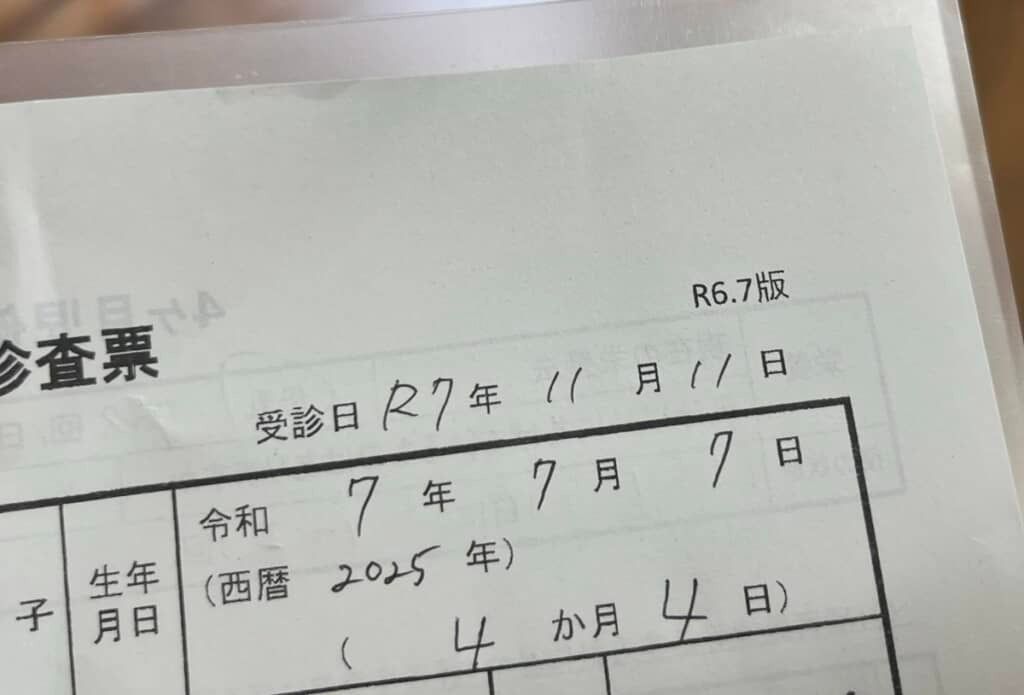 R6.7版
診査票
受診日 R7年 11月 11日
子
生年月日
令和 7年 7月 7日
(西暦 2025年)
(4か月4日)